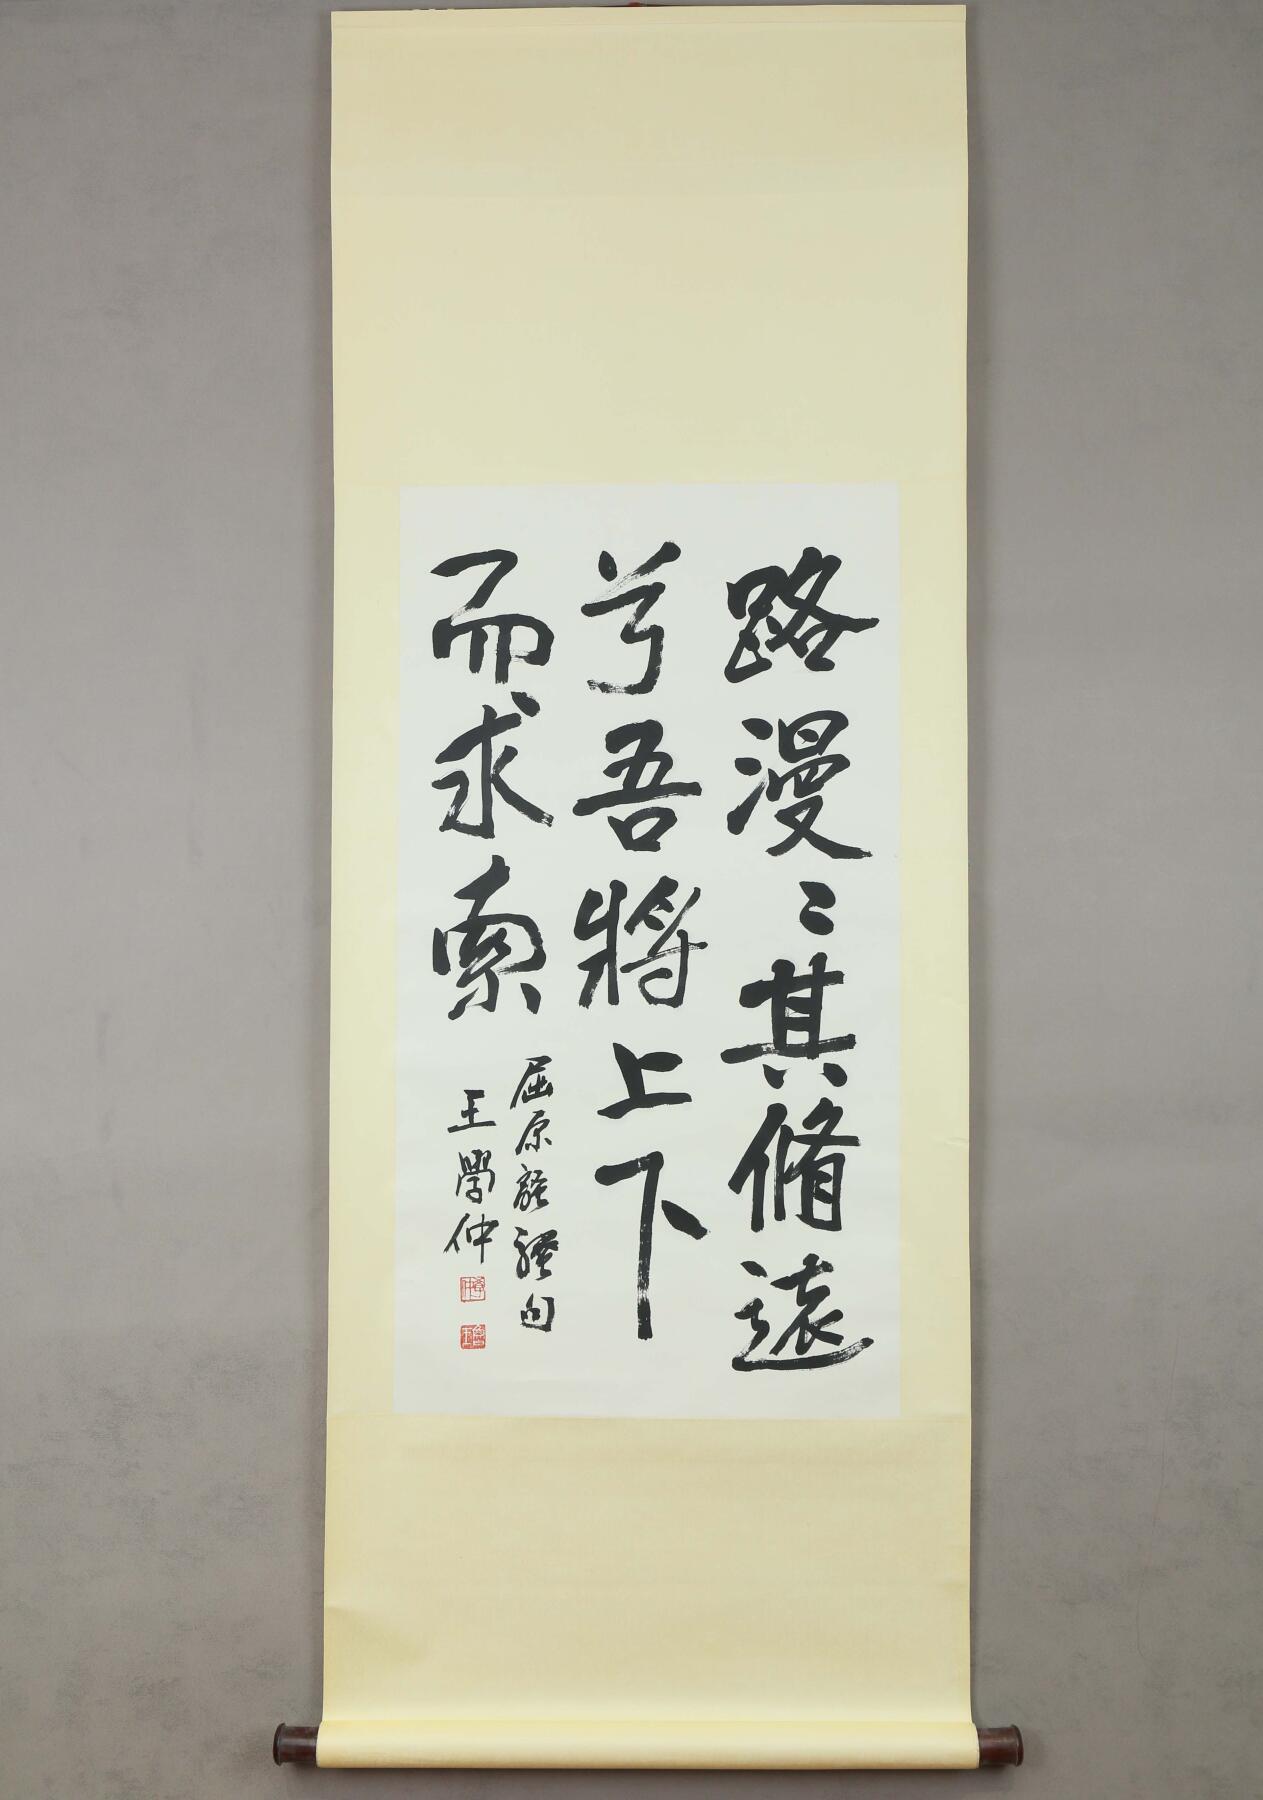 路漫〻其脩遠
兮吾將上下
而求索
屈原離騷句
王學仲